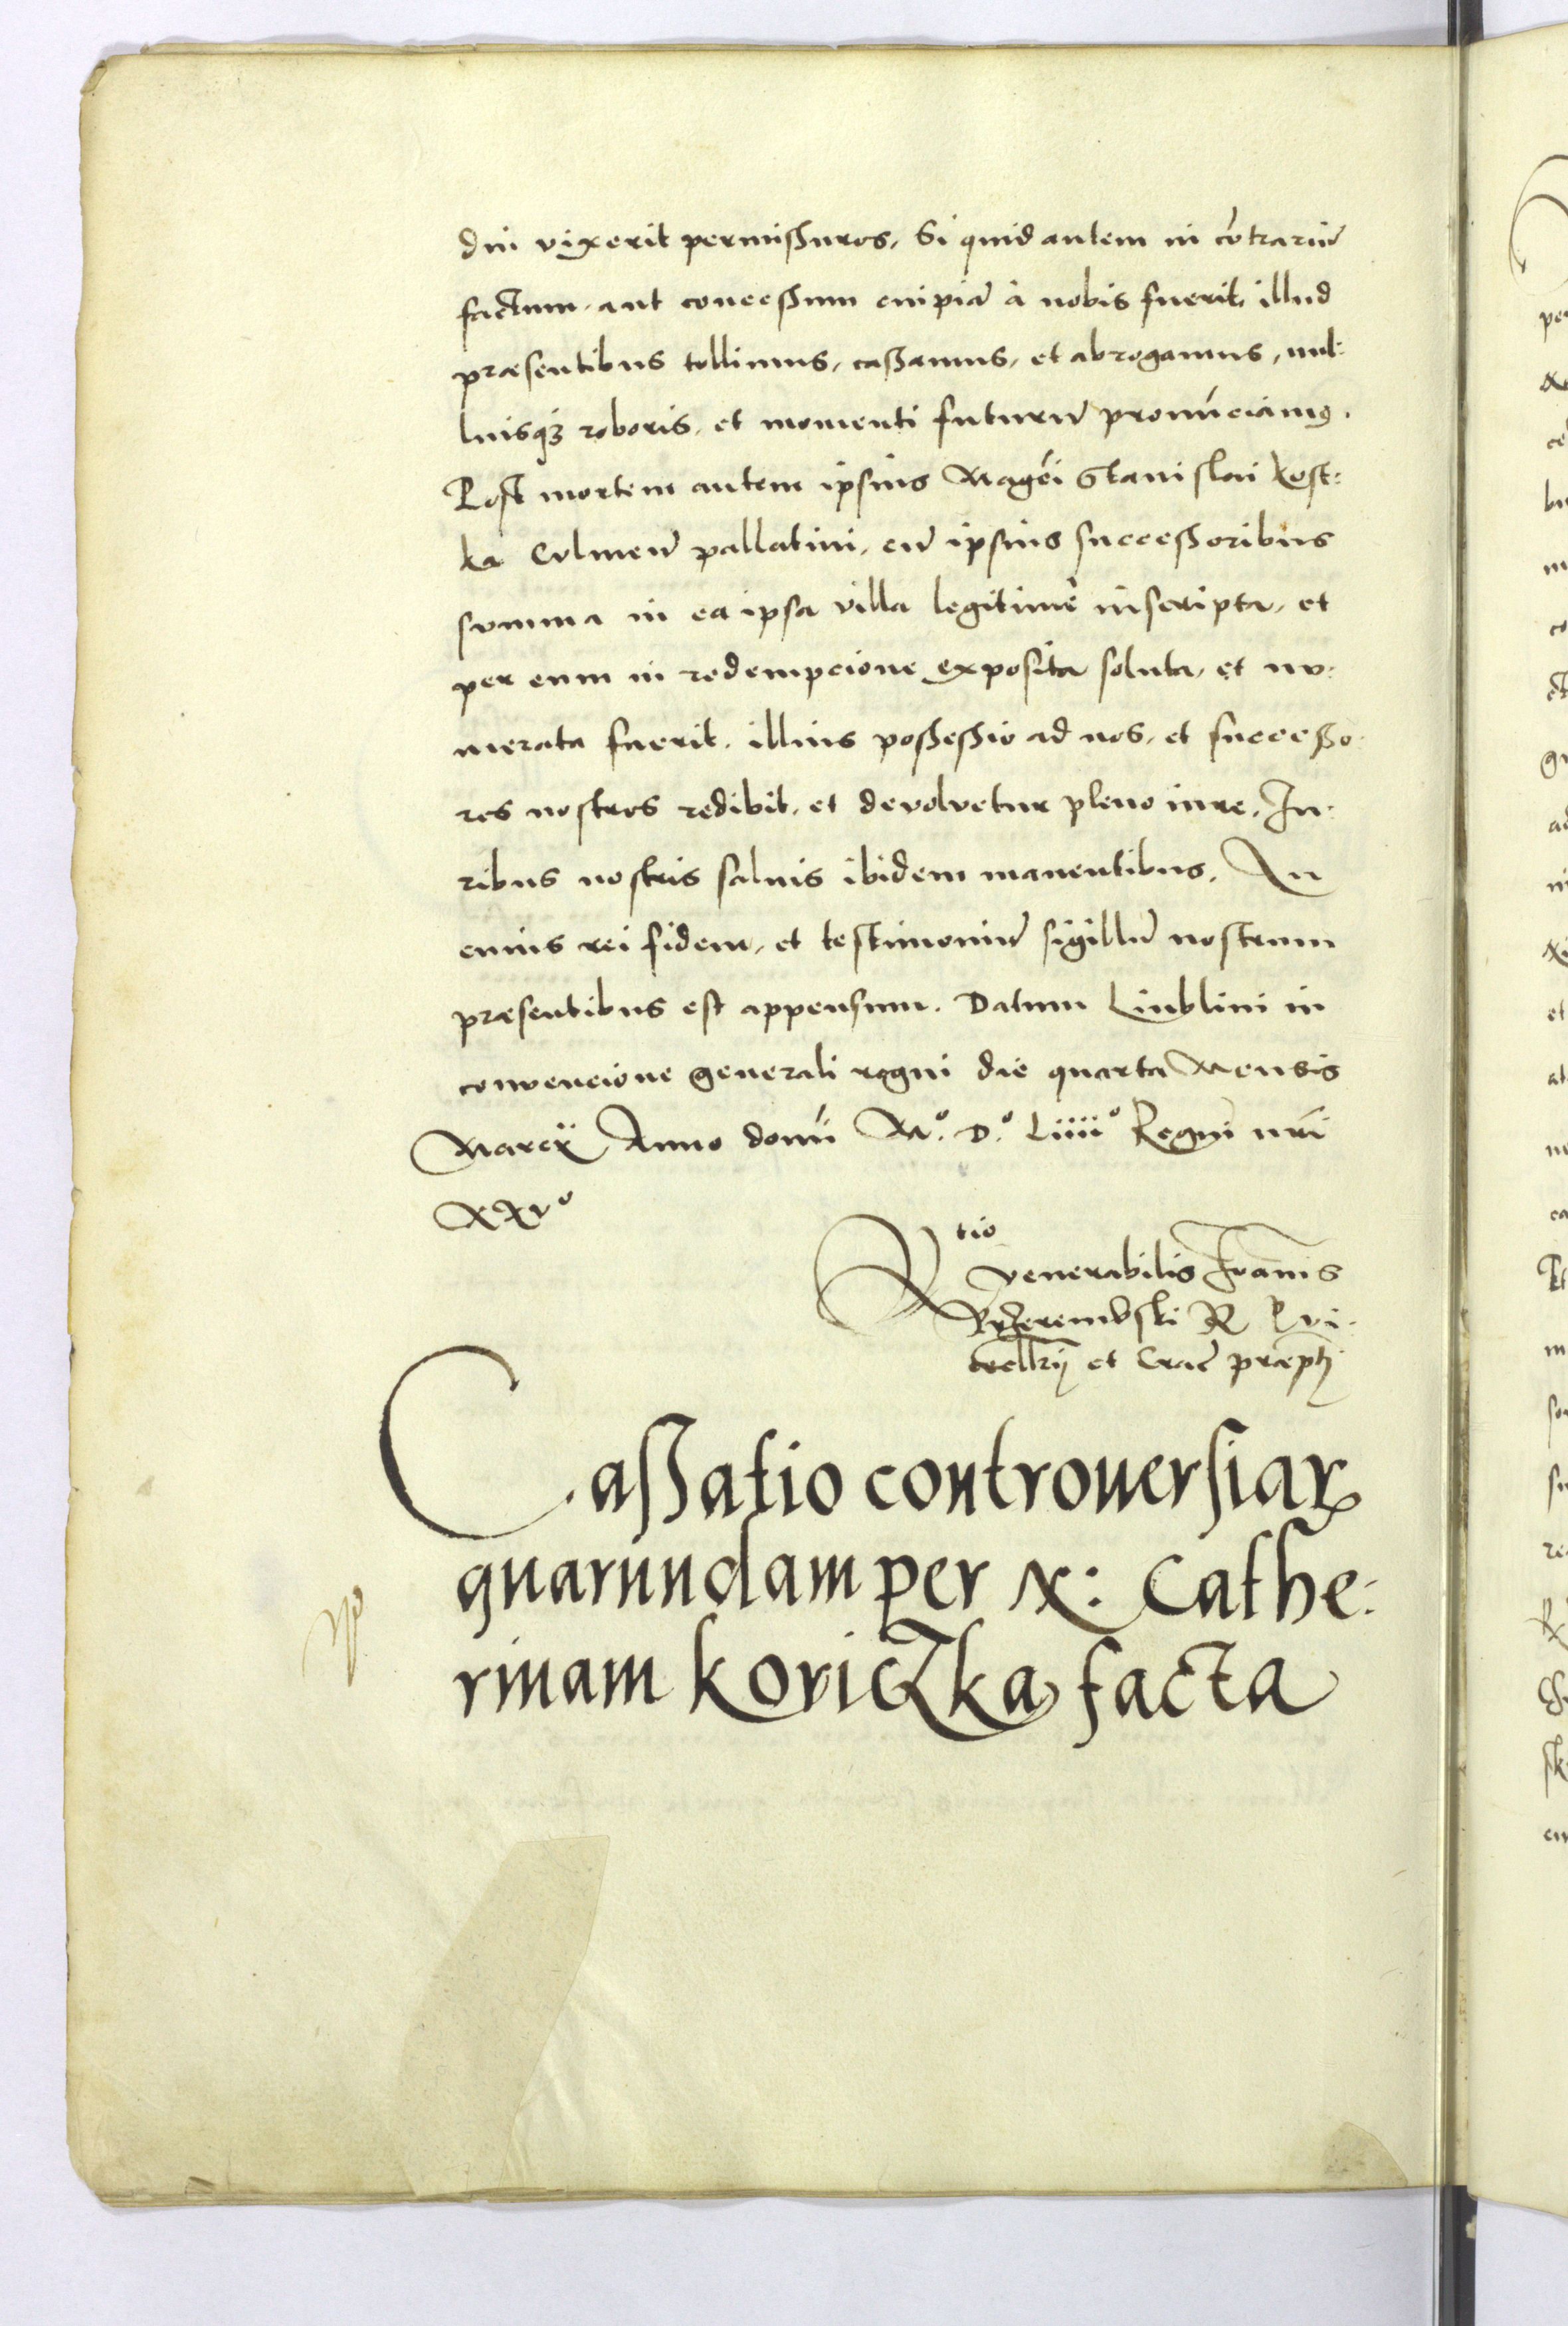 diu vixerit permissuros. Si quid autem in cõtrariũ
factum, aut concessum cuipiã à nobis fuerit, illud
præsentibus tollimus, cassamus, et abrogamus, nul:
luisq3 roboris, et momenti futurũ pronũciamꝰ.
Post mortem autem ipsius Magci Stanislai Kost:
ka Culmeñ pallatini, cũ ipsius successoribus
summa in ea ipsa villa legitimè inscripta, et
per eum in redempcione exposita soluta, et nu:
merata fuerit, illius possessio ad nos, et successo:
res nostros redibit, et devolvetur pleno iure. Iu:
ribus nostris salvis ibidem manentibus. In
cuius rei fidem, et testimoniũ sigillũ nostrum
præsentibus est appensum. Datum Liublini in
convencione generali regni die quarta Mensis
Marcÿ Anno domi M.º D.º Liiiiº Regni nri
XXVº
Rtio
venerabilis Ioanis
Przerembski R P vi:
cecllrij et Crac præpti
Cassatio controuersiaꝝ
quarundam per N: Cathe:
rinam Koriczka facta